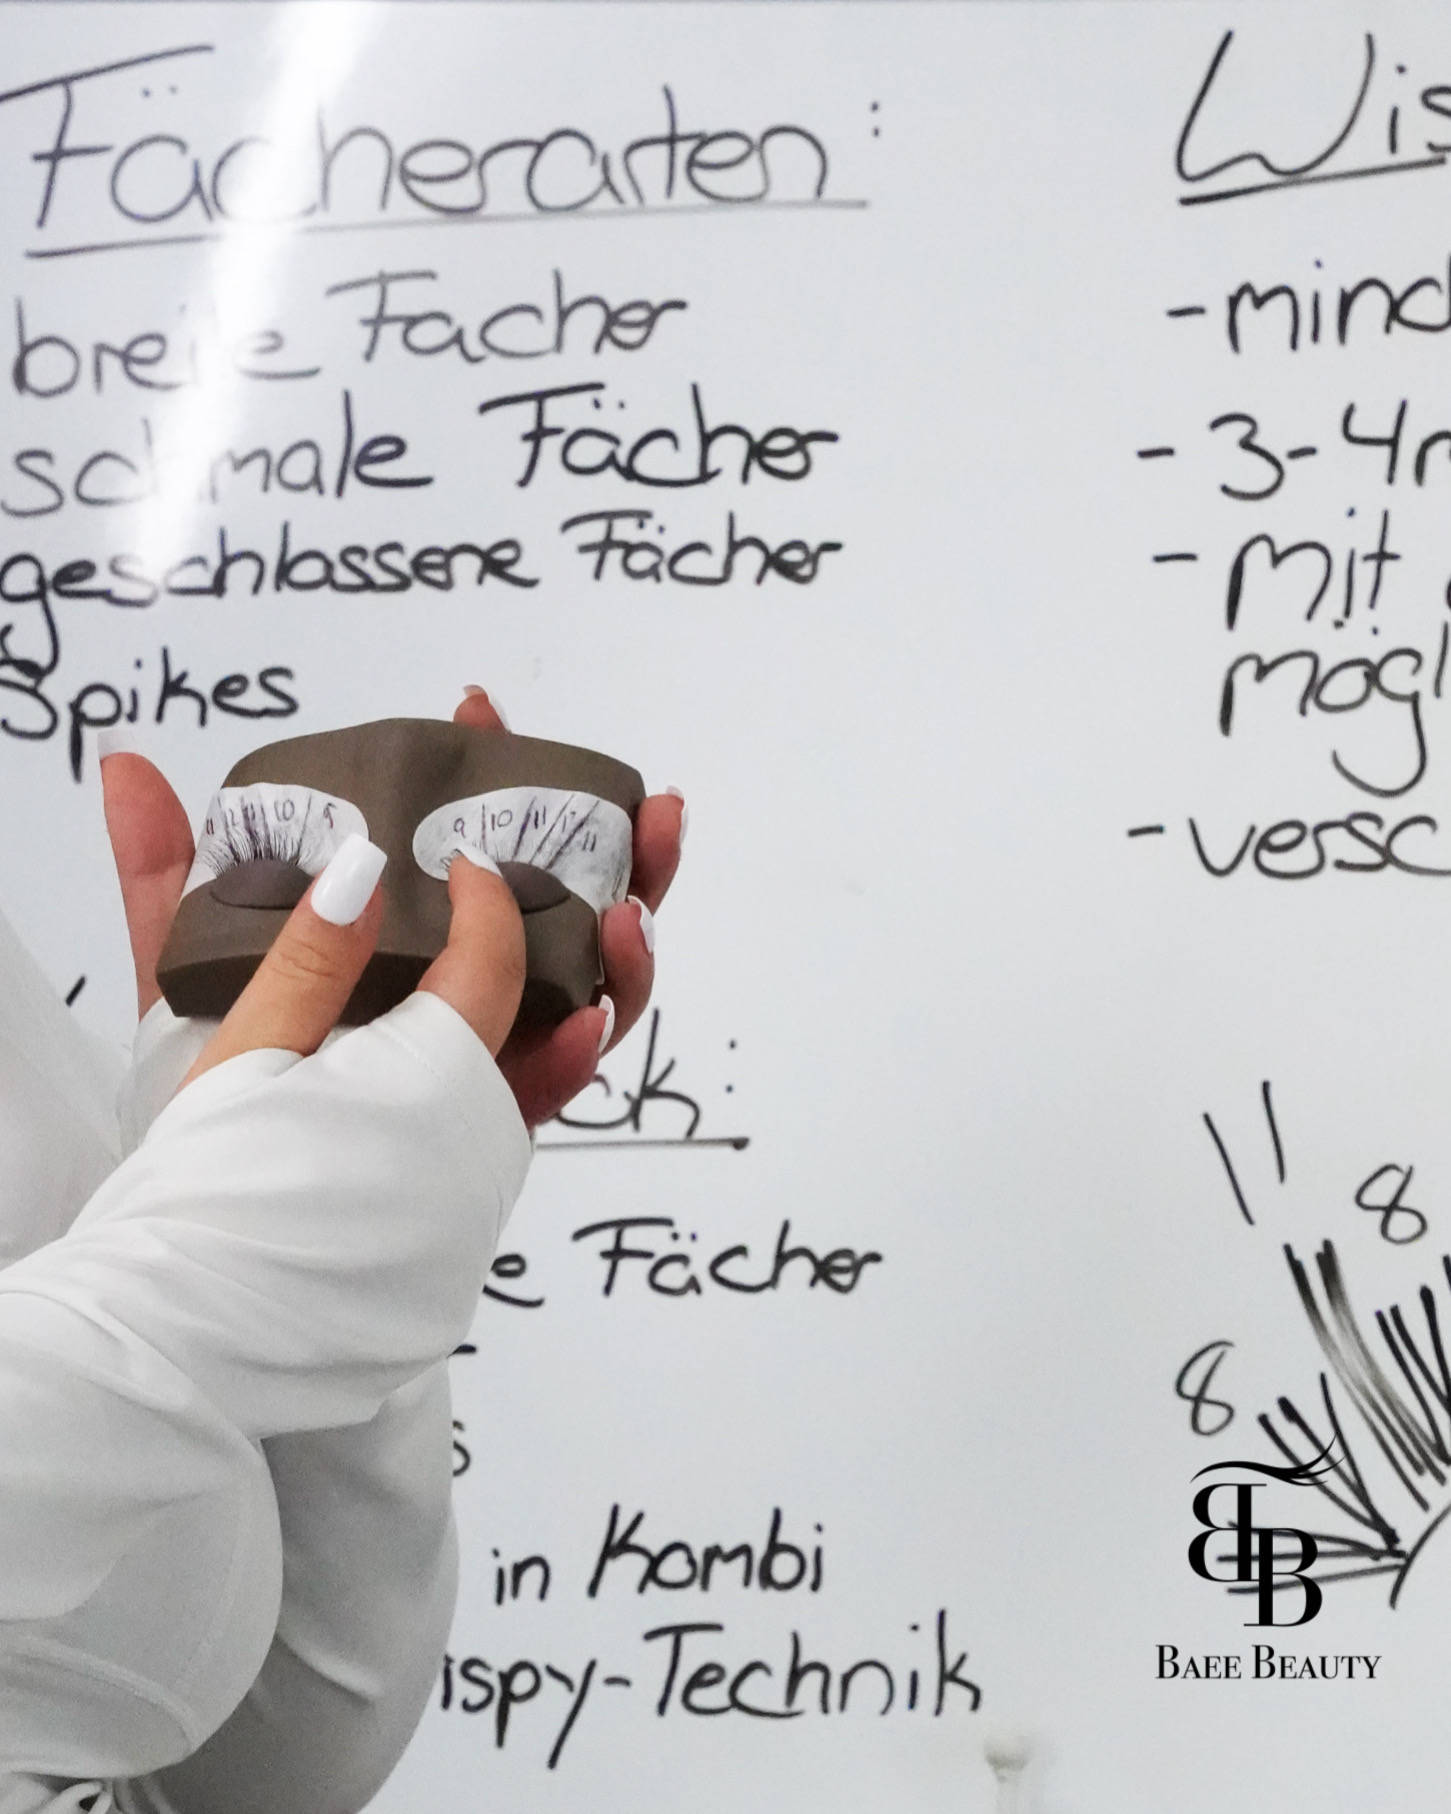 Fächerarten:
breite Fächer
schmale Fächer
geschlossene Fächer
Spikes
ck:
e Fächer
in Kombi
ispy-Technik
Wis
- mind
- 3-4m
- mit
mögl
- versc
8
8
11 12 11 10 9
9 10 11 12 11
BB
BAEE BEAUTY